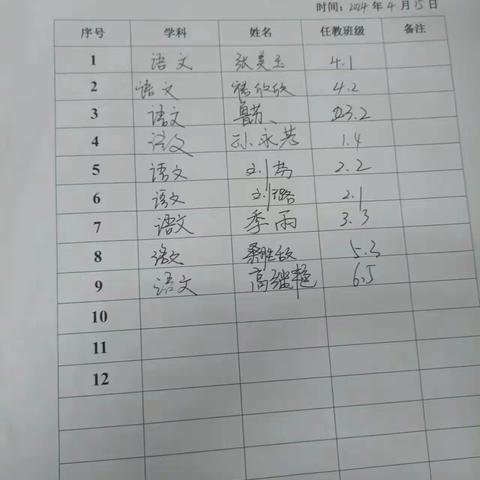 时间：2024年4月15日
序号 学科 姓名 任教班级 备注
1 语文 张美玉 4.1
2 语文 4.2
3 语文 鲁芸 3.2
4 语文 孙永芳 1.4
5 语文 刘 2.2
6 语文 刘璐 2.1
7 语文 季雨 3.3
8 语文 5.3
9 语文 高继艳 6.5
10
11
12